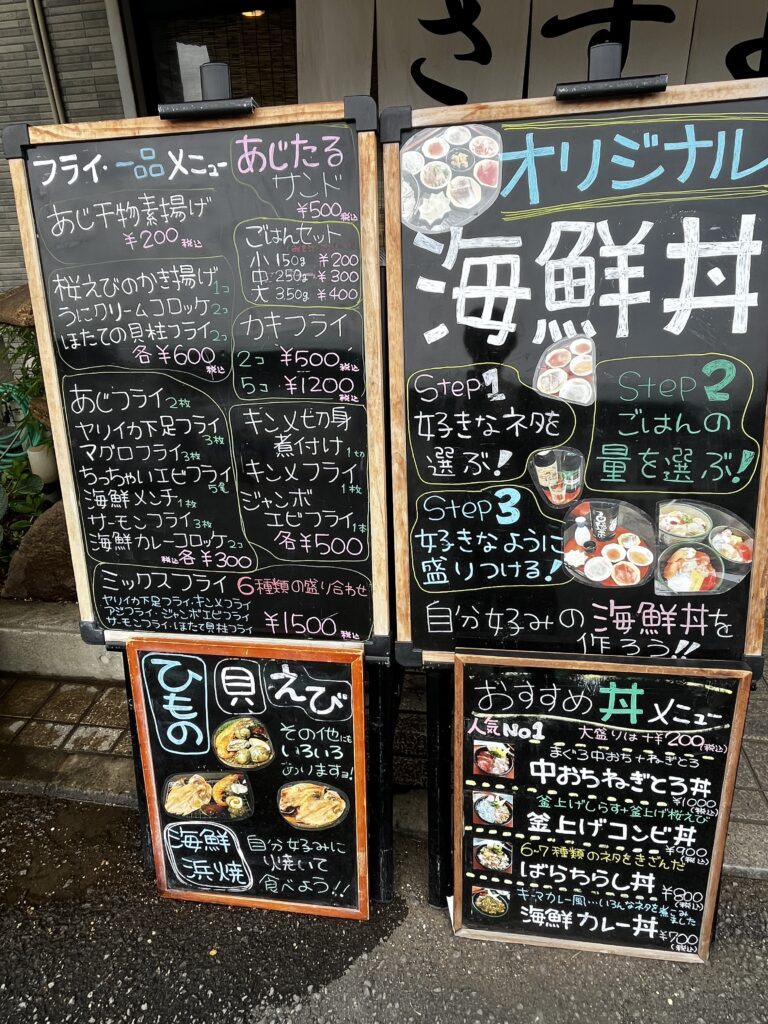 さすよ
フライ・一品メニュー
あじ干物素揚げ
¥200税込
桜えびのかき揚げ1コ
うにクリームコロッケ2コ
ほたての貝柱フライ2コ
各¥600税込
あじフライ2枚
ヤリイカ下足フライ3枚
マグロフライ3枚
ちっちゃいエビフライ5尾
海鮮メンチ1枚
サーモンフライ3枚
海鮮カレーコロッケ2コ
税込各¥300
あじたる
サンド
¥500税込
ごはんセット
小150g ¥200
中250g ¥300
大350g ¥400
カキフライ
2コ ¥500税込
5コ ¥1200税込
キンメ切身
煮付け1切
キンメフライ1枚
ジャンボ
エビフライ1本
各¥500
ミックスフライ 6種類の盛り合わせ
ヤリイカ下足フライ・キンメフライ
アジフライ・ジャンボエビフライ
サーモンフライ・ほたて貝柱フライ
¥1500税込
オリジナル
海鮮丼
Step1
好きなネタを
選ぶ!
Step2
ごはんの
量を選ぶ!
Step3
好きなように
盛りつける!
自分好みの海鮮丼を
作ろう!!
ひもの
貝
えび
その他にも
いろいろ
ありますョ!
海鮮
浜焼
自分好みに
火焼いて
食べよう!!
おすすめ丼メニュー
人気No1
大盛りは+¥200(税込)
まぐろ中おち+ねぎとろ
中おちねぎとろ丼
¥1000(税込)
釜上げしらす+釜上げ桜えび
釜上げコンビ丼
¥900(税込)
6~7種類のネタをきざんだ
ばらちらし丼
¥800(税込)
キーマカレー風…いろんなネタを煮こみました
海鮮カレー丼
¥700(税込)